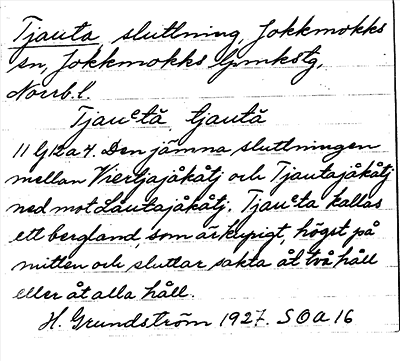 Tjauta, sluttning, Jokkmokks
sn, Jokkmokks lpmkstg,
Norrb.l.
Tjauᵉtā tjautā
11 G12a4. Den jämna sluttningen
mellan Viertjajåkåtj och Tjautajåkåtj
ned mot Låutajåkåtj. Tjauᵉta kallas
ett bergland, som är kuperigt, högst på
mitten och sluttar sakta åt två håll
eller åt alla håll.
H. Grundström 1927. SOA 16